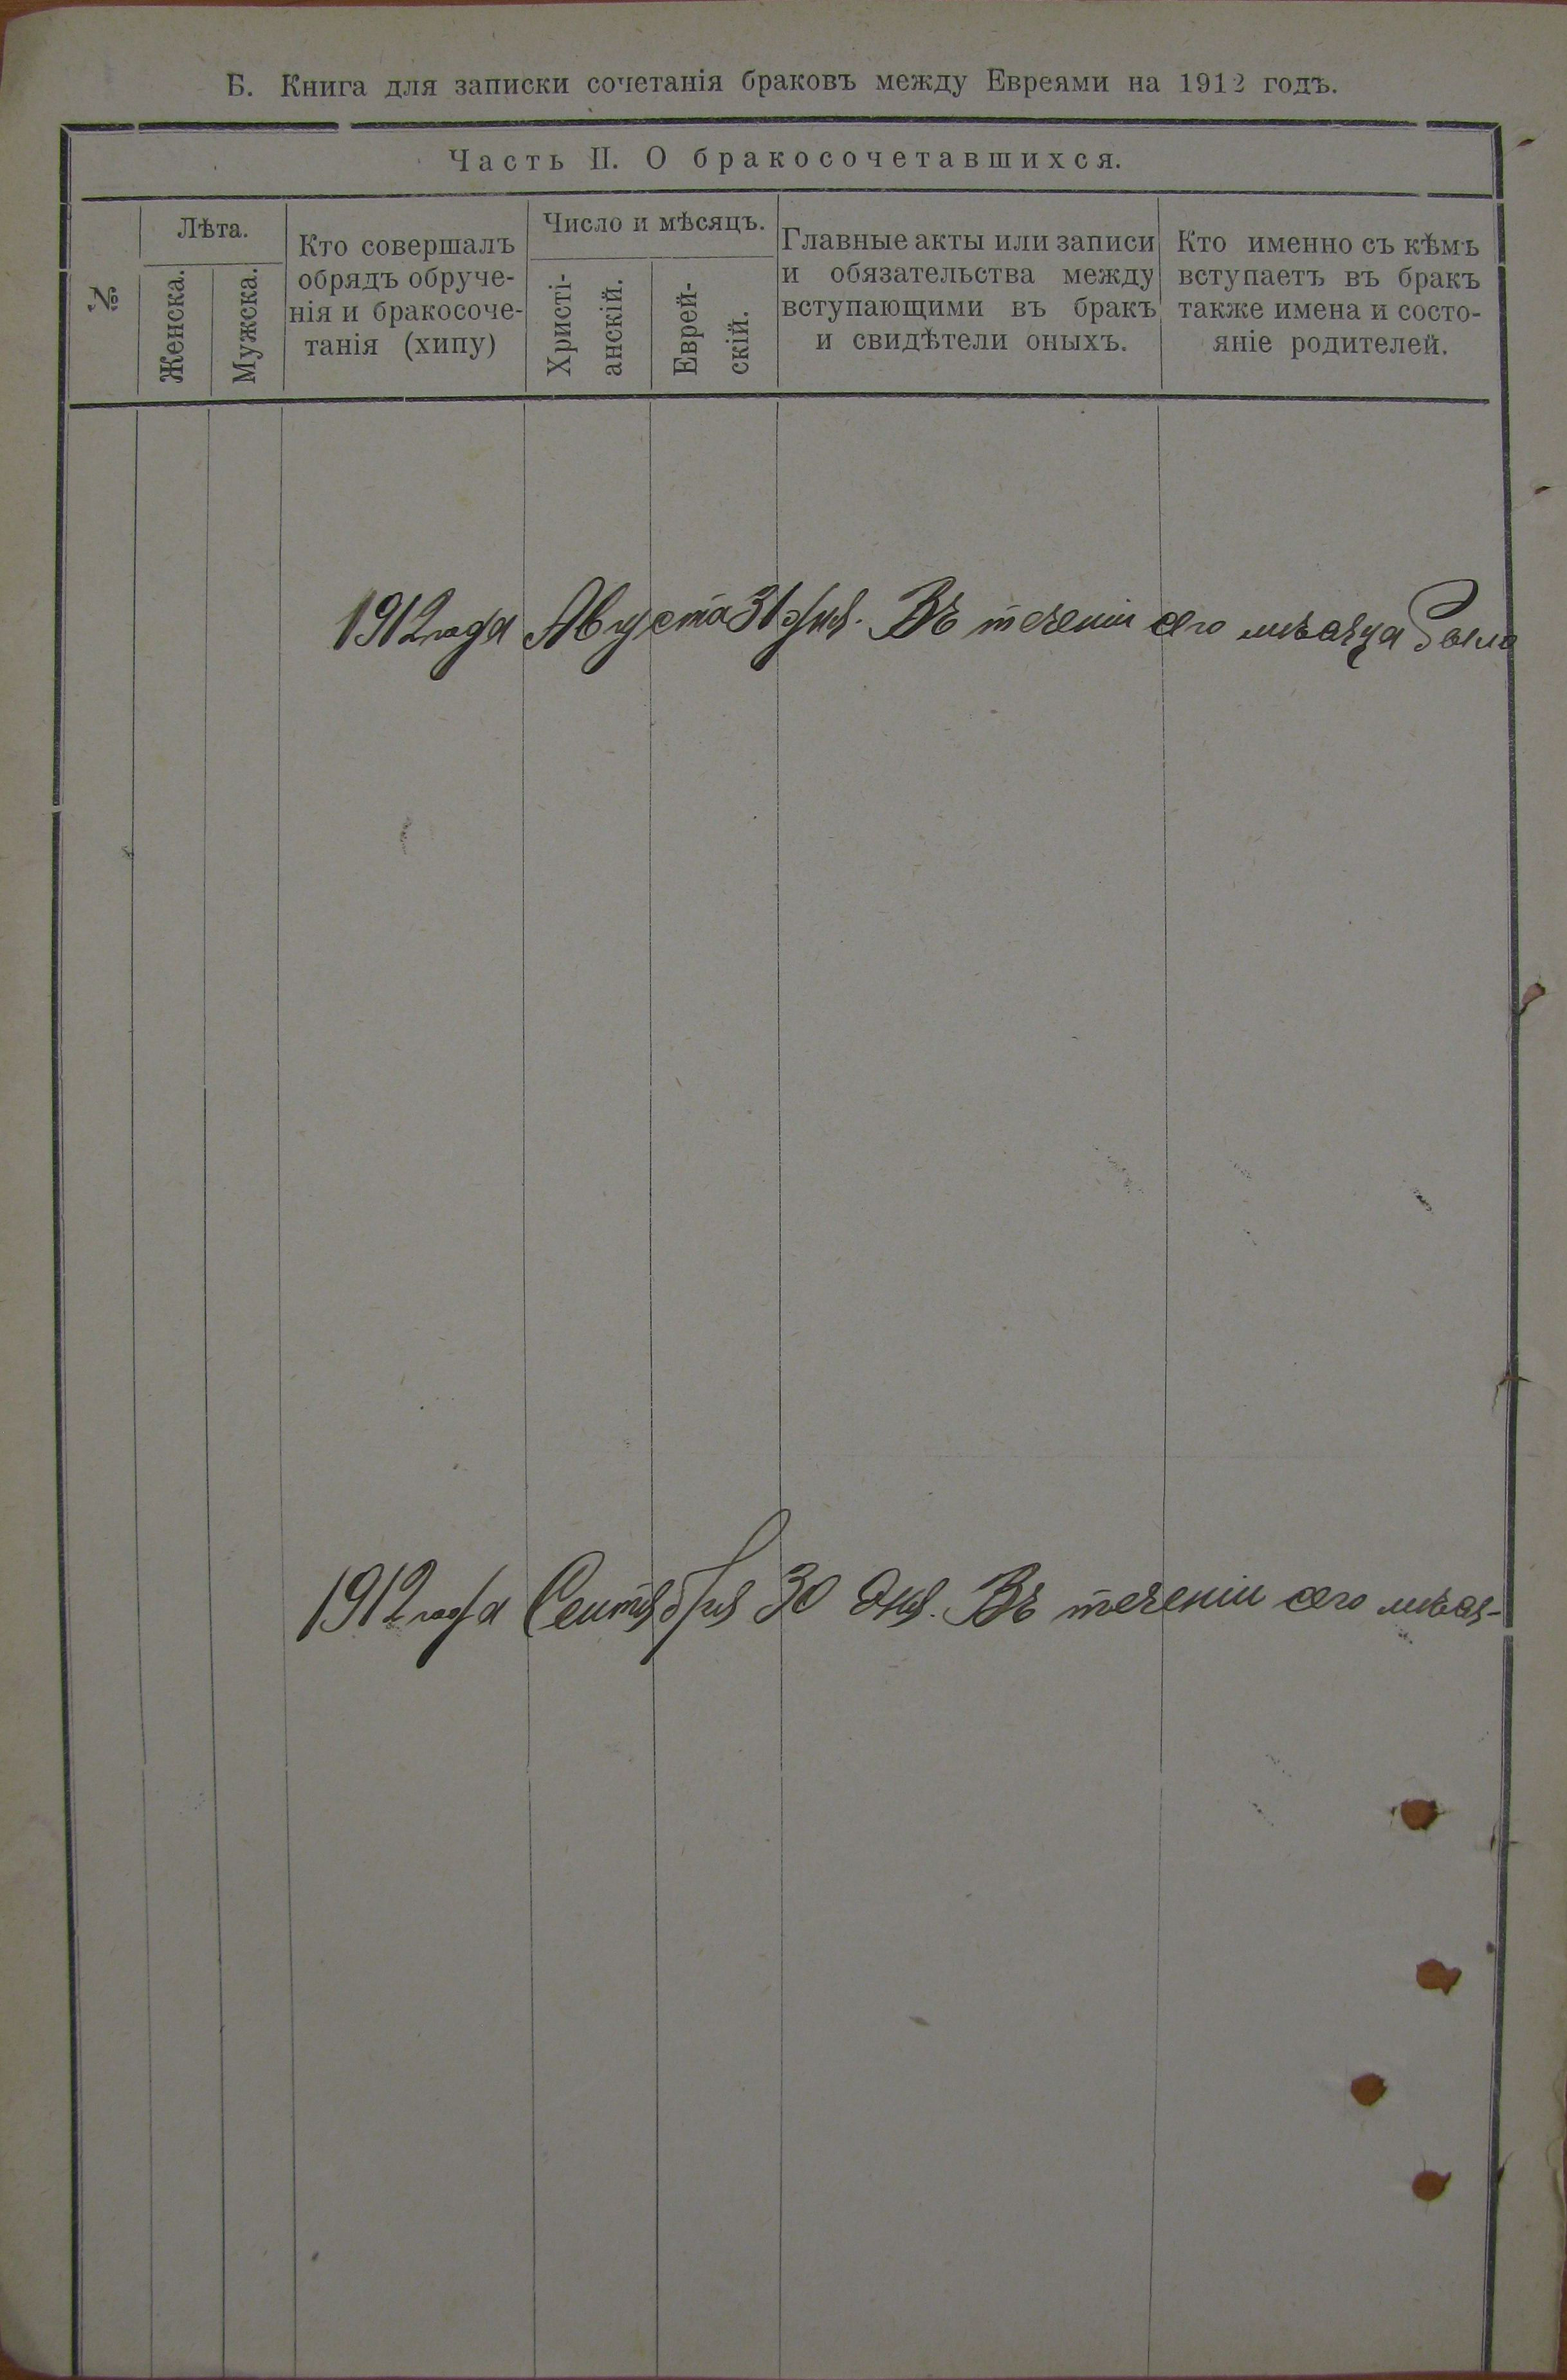 Б. Книга для записки сочетанія браковъ между Евреями на 1912 годъ.
Часть II. О бракосочетавшихся.
№
Лѣта.
Женска.
Мужска.
Кто совершалъ
обрядъ обруче-
нія и бракосоче-
танія (хипу)
Число и мѣсяцъ.
Христі-
анскій.
Еврей-
скій.
Главные акты или записи
и обязательства между
вступающими въ бракъ
и свидѣтели оныхъ.
Кто именно съ кѣмъ
вступаетъ въ бракъ
также имена и состо-
яніе родителей.
1912 года Августа 31 дня. Въ теченіи сего мѣсяца было
1912 года Сентября 30 дня. Въ теченіи сего мѣся-